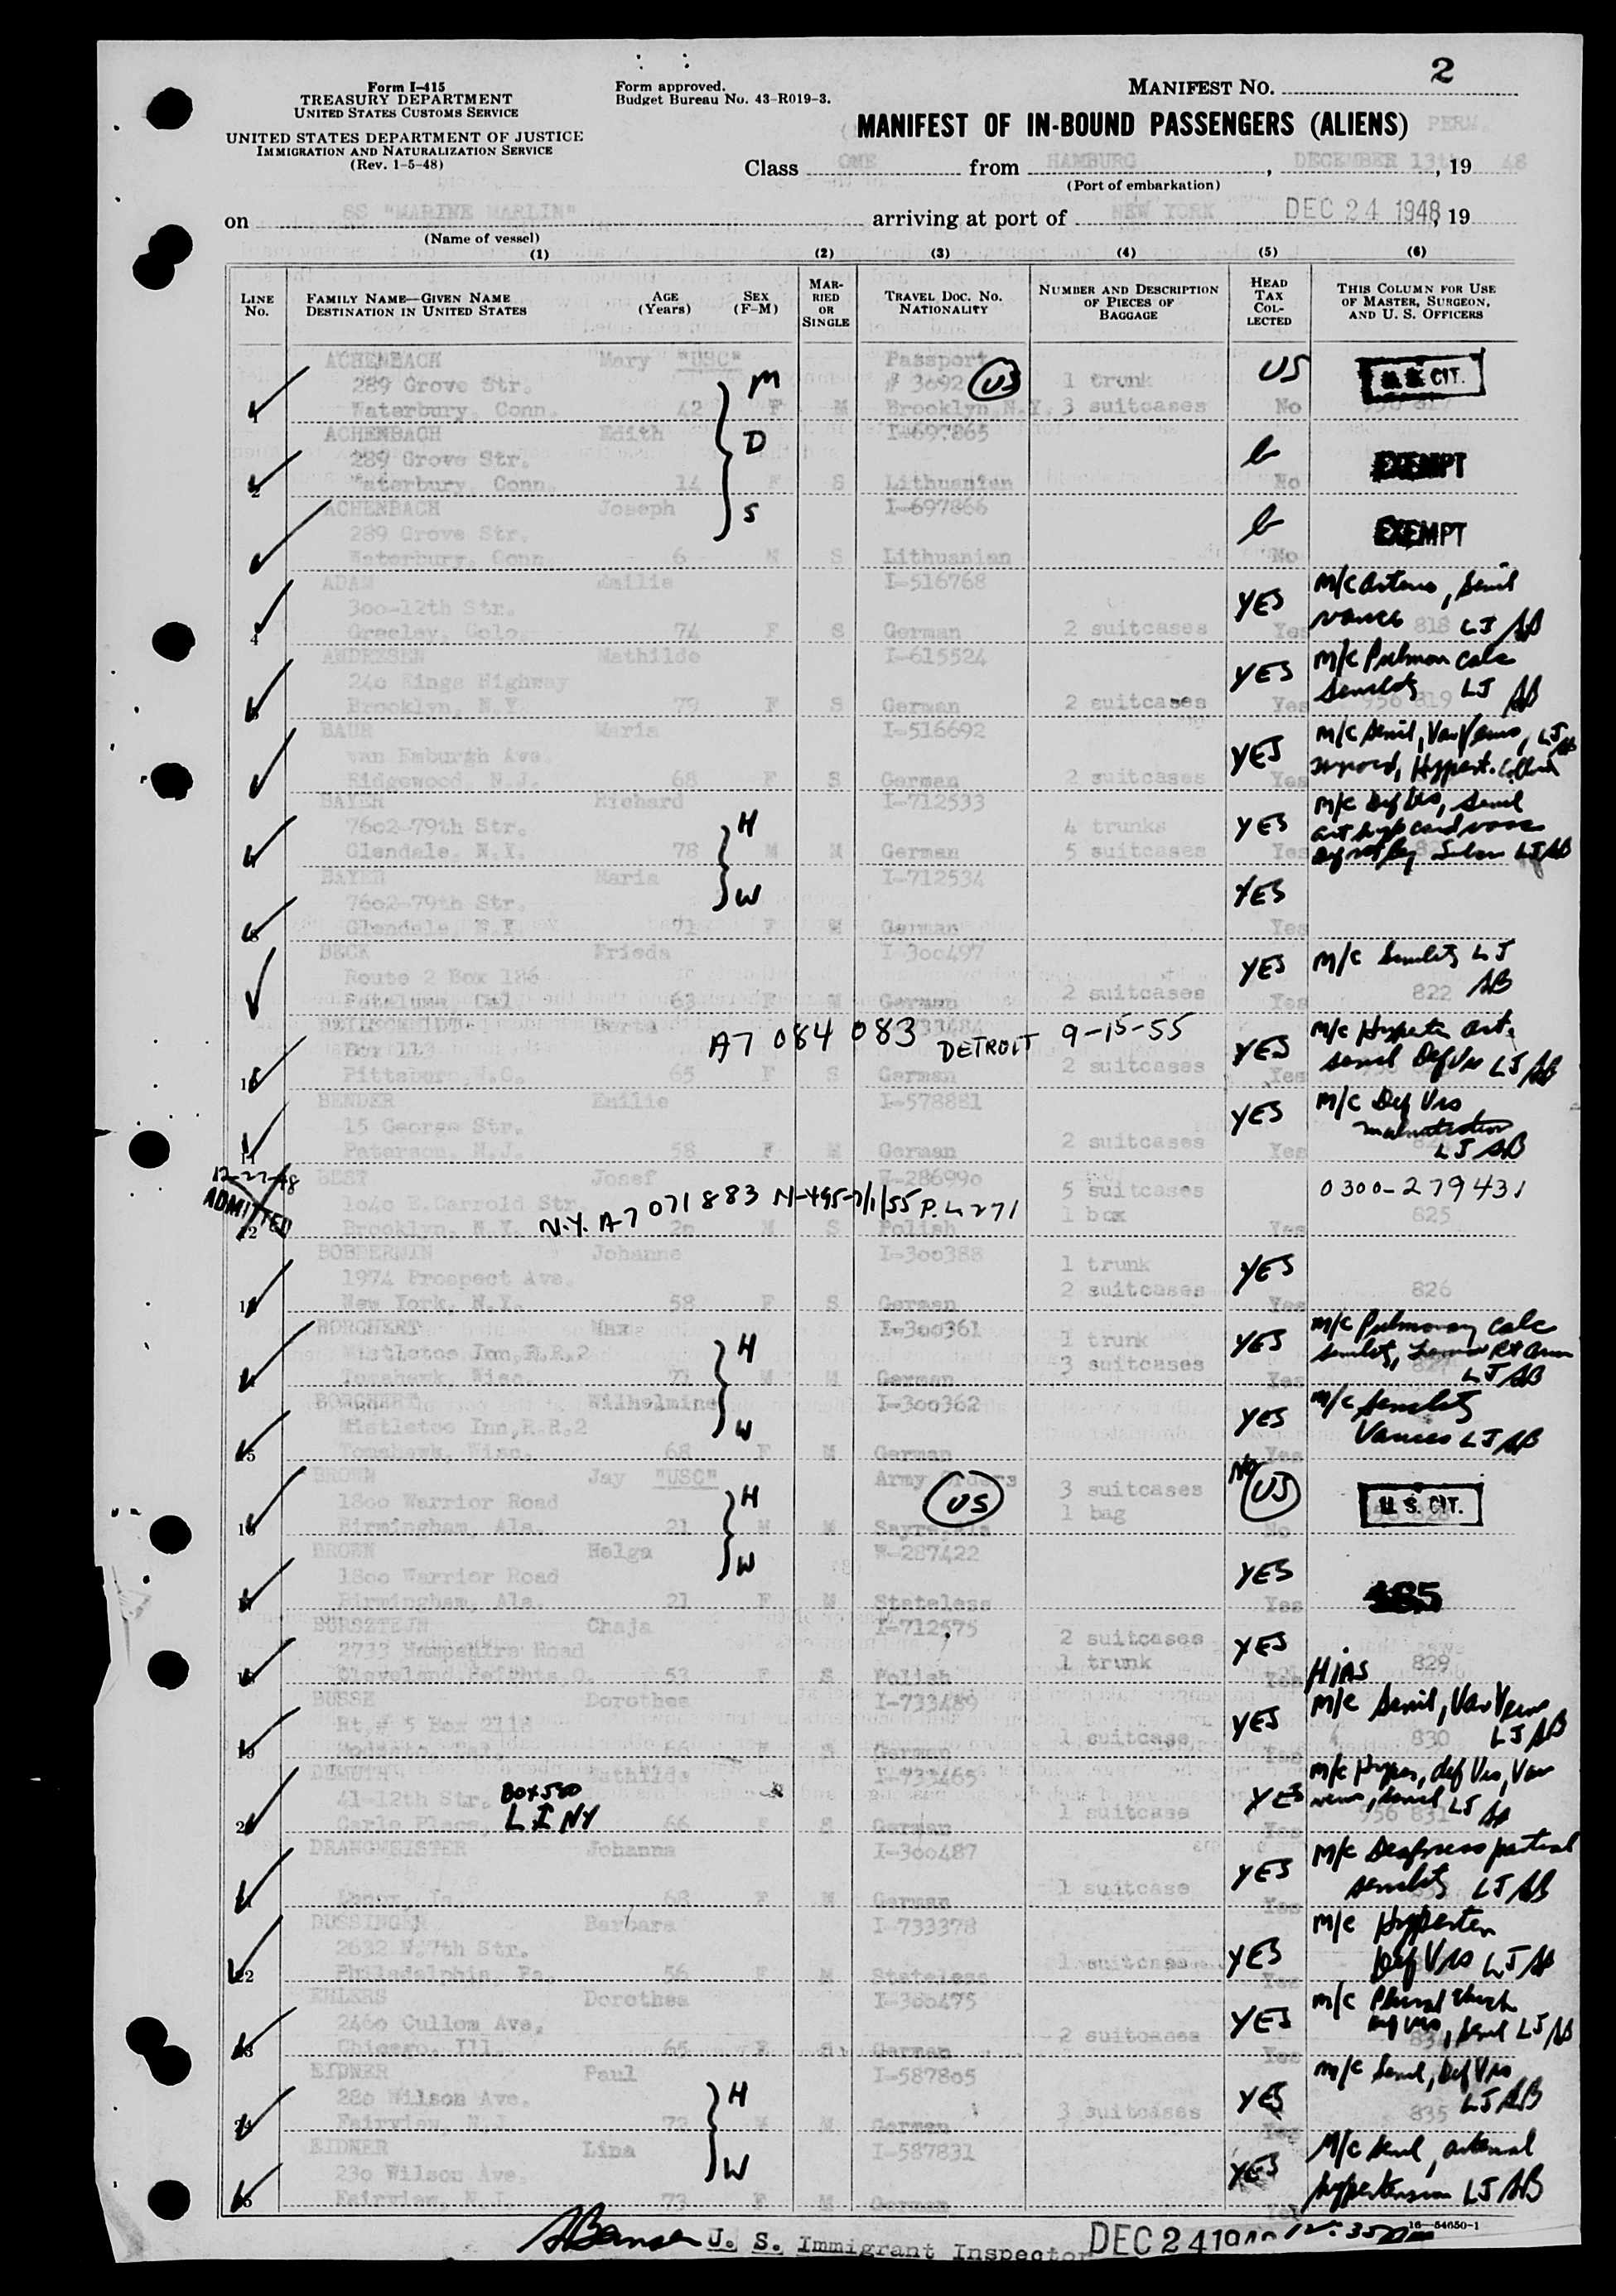 2
Form I-415
TREASURY DEPARTMENT
UNITED STATES CUSTOMS SERVICE
UNITED STATES DEPARTMENT OF JUSTICE
IMMIGRATION AND NATURALIZATION SERVICE
(Rev. 1-5-48)
Form approved.
Budget Bureau No. 43-R019-3.
MANIFEST NO.
MANIFEST OF IN-BOUND PASSENGERS (ALIENS) PERM.
Class ONE from HAMBURG, DECEMBER 13th, 19 48
(Port of embarkation)
on SS "MARINE MARLIN" arriving at port of NEW YORK DEC 24 1948, 19
(Name of vessel)
(1) (2) (3) (4) (5) (6)
LINE No.
FAMILY NAME—GIVEN NAME
DESTINATION IN UNITED STATES
AGE (Years)
SEX (F-M)
MARRIED OR SINGLE
TRAVEL DOC. NO. NATIONALITY
NUMBER AND DESCRIPTION OF PIECES OF BAGGAGE
HEAD TAX COLLECTED
THIS COLUMN FOR USE OF MASTER, SURGEON, AND U. S. OFFICERS
ACHENBACH Mary "USC" M Passport US
289 Grove Str. # 3092 US 1 trunk U.S. CIT.
Waterbury, Conn. 42 F M Brooklyn, N.Y. 3 suitcases No
ACHENBACH Edith D I-697865
289 Grove Str. EXEMPT
2 Waterbury, Conn. 14 F S Lithuanian No
ACHENBACH Joseph S I-697866
289 Grove Str. EXEMPT
Waterbury, Conn. 6 M S Lithuanian No
ADAM Emilie I-516768 YES
300-12th Str. LJ AB
4 Greeley, Colo. 74 F S German 2 suitcases Yes 818
ANDRESEN Mathilde I-615524 YES m/c Pulmon calc
240 Kings Highway LJ AB
Brooklyn, N.Y. 79 F S German 2 suitcases Yes 956 819
BAUR Maria I-516692 YES m/c Senil, Var Veins, LJ AB
van Emburgh Ave.
Ridgewood, N.J. 68 F S German 2 suitcases Yes
BAYER Richard H I-712533 YES m/c Def Vis, Senil
7602-79th Str. 4 trunks
Glendale, N.Y. 78 M M German 5 suitcases Yes LJ AB
BAYER Maria W I-712534 YES
7602-79th Str.
Glendale, N.Y. 71 F M German Yes
BECK Frieda I-300497 YES m/c Senility LJ AB
Route 2 Box 186
Petaluma Cal 63 F M German 2 suitcases Yes 822
Berta A7 084 083 DETROIT 9-15-55 YES
Box 113
Pittsboro, N.C. 65 F S German 2 suitcases Yes LJ AB
BENDER Emilie I-578881 YES m/c Def Vis
15 George Str. malnutrition
Paterson, N.J. 58 F M German 2 suitcases Yes LJ AB
12-27-48 ADMITTED
BEST Josef W-286990 5 suitcases 0300-279431
1040 E. Carrold Str. N.Y. A7 071883 N-495-7/1/55 P.L 271
12 Brooklyn, N.Y. 20 M S Polish 1 box Yes 825
BOBDERMIN Johanne I-300388 1 trunk YES
1974 Prospect Ave. 2 suitcases 826
New York, N.Y. 58 F S German Yes
BORCHERT Max H I-300361 1 trunk YES m/c Pulmonary calc
Mistletoe Inn, R.R.2 3 suitcases
Tomahawk, Wisc. 77 M M German Yes LJ AB
BORCHERT Wilhelmine W I-300362 YES m/c Senility
Mistletoe Inn, R.R.2 Varices LJ AB
Tomahawk, Wisc. 68 F M German Yes
BROWN Jay "USC" H Army Orders 3 suitcases No US
1800 Warrior Road US 1 bag U. S. CIT.
Birmingham, Ala. 21 M M Sayre, Ala No
BROWN Helga W W-287422 YES
1800 Warrior Road
Birmingham, Ala. 21 F M Stateless Yes
BURSZTEJN Chaja I-712575 2 suitcases YES
2733 Hampshire Road 1 trunk 829
Cleveland Heights, O. 53 F S Polish Yes HIAS
BUSSE Dorothea I-733489 YES m/c Senil, Var Veins
Rt. # 5 Box 2118 LJ AB
Modesto, Cal. 66 F S German 1 suitcase Yes 830
DEMUTH Mathilde I-733465 YES
41-12th Str. BOX 580
Carle Place, L I NY 66 F S German 1 suitcase Yes 956 831 LJ AB
DRANGMEISTER Johanna I-300487 YES m/c Deafness partial
senility LJ AB
68 F M German 1 suitcase Yes
DUSSINGER Barbara I-733378 YES m/c Hyperten
2632 N. 7th Str. Def Vis LJ AB
22 Philadelphia, Pa. 56 F M Stateless 1 suitcase Yes
EHLERS Dorothea I-300475 YES
2460 Cullom Ave. LJ AB
Chicago, Ill. 65 F S German 2 suitcases Yes
EIDNER Paul H I-587805 YES m/c Senil, Def Vis
280 Wilson Ave. LJ AB
24 Fairview, N.J. 73 M M German 3 suitcases 835
EIDNER Lina W I-587831 YES m/c Senil, arterial
230 Wilson Ave. hypertension LJ AB
Fairview, N.J. 73 F M German Yes
U. S. Immigrant Inspector DEC 24 16—54650-1